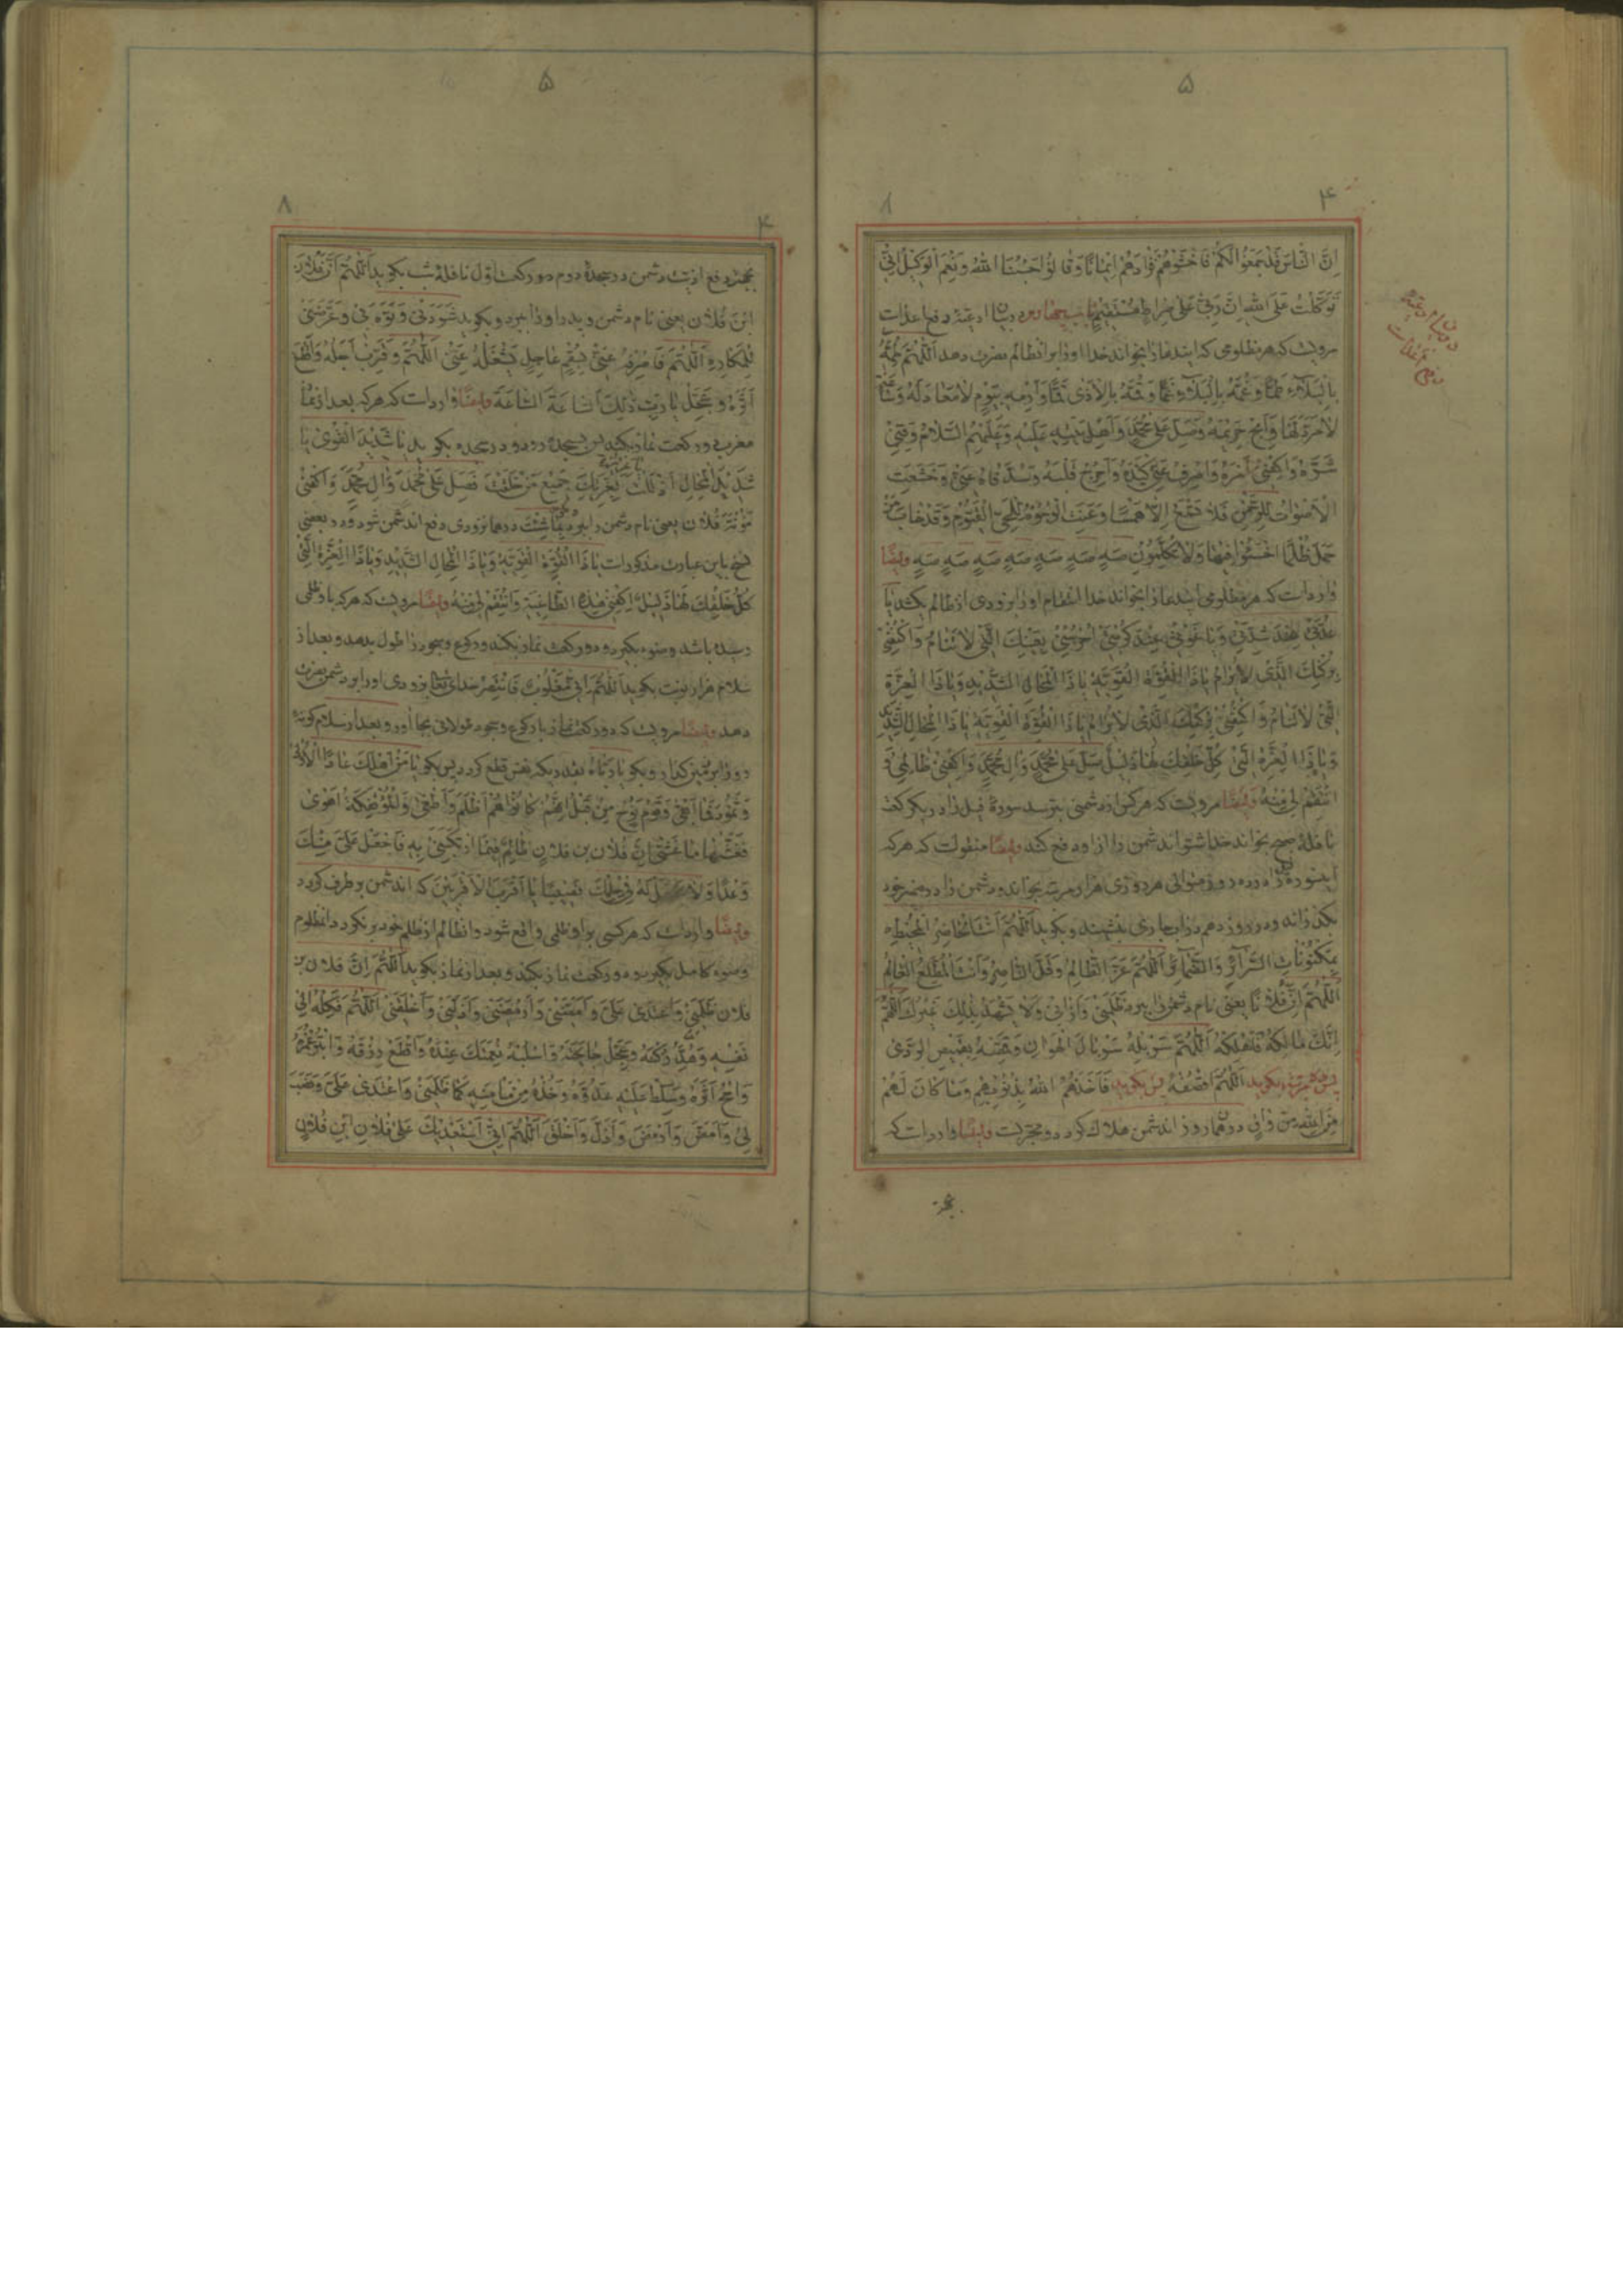 ۵
۴
۸
اِنَّ النّاسَ قَدْ جَمَعُوا لَكُمْ فَاخْشَوْهُمْ فَزادَهُمْ اِیمانًا وَ قالُوا حَسْبُنَا اللهُ وَ نِعْمَ الْوَكِیلُ اِنّی
تَوَكَّلْتُ عَلَی اللهِ اِنَّ رَبّی عَلی صِراطٍ مُسْتَقیمٍ باب چهاردهم در بیان ادعیهٔ دفع اعدات
مرویست که هر مظلومی که ایندعا را بخواند خدا او را بر انظالم نصرت دهد اَللّهُمَّ طُمَّهُ
بِالْبَلاءِ طَمًّا وَ غُمَّهُ بِالْبَلاءِ غَمًّا وَ قُمَّهُ بِالْاَذی قَمًّا وَ ارْمِهِ بِیَوْمٍ لا مَعادَ لَهُ وَ ساعَةٍ
لا مَرَدَّ لَها وَ اَبِحْ حَریمَهُ وَ صَلِّ عَلی مُحَمَّدٍ وَ اَهْلِ بَیْتِهِ عَلَیْهِ وَ عَلَیْهِمُ السَّلامُ وَ قِنی
شَرَّهُ وَ اكْفِنی اَمْرَهُ وَ اصْرِفْ عَنّی كَیْدَهُ وَ اَحْرِجْ قَلْبَهُ وَ سُدَّ فاهُ عَنّی وَ خَشَعَتِ
الْاَصْواتُ لِلرَّحْمنِ فَلا تَسْمَعُ اِلّا هَمْسًا وَ عَنَتِ الْوُجُوهُ لِلْحَیِّ الْقَیُّومِ وَ قَدْ خابَ مَنْ
حَمَلَ ظُلْمًا اخْسَئُوا فیها وَ لا تُكَلِّمُونِ صَهٍ صَهٍ صَهٍ صَهٍ صَهٍ صَهٍ صَهٍ وایضًا
واردات که هر مظلومی ایندعا را بخواند خدا انتقام او را بزودی از ظالم بکشد یا
عُدَّتی عِنْدَ شِدَّتی وَ یا غَوْثی عِنْدَ كُرْبَتی اُحْرُسْنی بِعَیْنِكَ الَّتی لا تَنامُ وَ اكْنُفْنی
بِرُكْنِكَ الَّذی لا یُرامُ یا ذَا الْقُوَّةِ الْقَوِیَّةِ یا ذَا الْمِحالِ الشَّدیدِ وَ یا ذَا الْعِزَّةِ
الَّتی لا تَنامُ وَ اكْنُفْنی بِرُكْنِكَ الَّذی لا یُرامُ یا ذَا الْقُوَّةِ الْقَوِیَّةِ یا ذَا الْمِحالِ الشَّدیدِ
وَ یا ذَا الْعِزَّةِ الَّتی كُلُّ خَلْقِكَ لَها ذَلیلٌ صَلِّ عَلی مُحَمَّدٍ وَ آلِ مُحَمَّدٍ وَ اكْفِنی ظالِمی وَ
انْتَقِمْ لی مِنْهُ وایضًا مرویست که هر کس از دشمنی بترسد سورهٔ فیل را در یکرکعت
نافلهٔ صبح بخواند خدا شر اندشمن را از او دفع کند وایضًا منقولست که هر که
اینسوره را ده روز متوالی هر روزی هزار مرتبه بخواند و دشمن را در ضمیر خود
بگذرانه و در روز دهم در آب جاری بنشیند و بگوید اَللّهُمَّ اَنْتَ الْحاضِرُ الْمُحیطُ
بِمَكْنُوناتِ السَّرائِرِ وَ الضَّمائِرِ اَللّهُمَّ عَزَّ الظّالِمُ وَ قَلَّ النّاصِرُ وَ اَنْتَ الْمُطَّلِعُ الْعالِمُ
اَللّهُمَّ اِنَّ فُلانًا یعنی نام دشمن را ببرد ظَلَمَنی وَ آذانی وَ لا یَشْهَدُ بِذلِكَ غَیْرُكَ اَللّهُمَّ
اِنَّكَ مالِكُهُ فَاَهْلِكْهُ اَللّهُمَّ سَرْبِلْهُ سَرْبالَ الْهَوانِ وَ قَمِّصْهُ بِقَمیصِ الرَّدی
پس ده مرتبه بگوید اَللّهُمَّ اقْصِفْهُ پس بگوید فَاَخَذَهُمُ اللهُ بِذُنُوبِهِمْ وَ ما كانَ لَهُمْ
مِنَ اللهِ مِنْ واقٍ در همان روز اندشمن هلاك گردد و مجربست وایضًا واردات که
بجهة
۵
۸
۴
بجهة دفع اذیت دشمن در سجدهٔ دوم دو رکعت اول نافلهٔ شب بگوید اَللّهُمَّ اِنَّ فُلانَ
ابْنَ فُلانٍ یعنی نام دشمن و پدر او را ببرد و بگوید شَهَرَنی وَ نَوَّهَ بی وَ عَرَّضَنی
لِلْمَكارِهِ اَللّهُمَّ فَاصْرِفْهُ عَنّی بِسُقْمٍ عاجِلٍ یَشْغَلُهُ عَنّی اَللّهُمَّ وَ قَرِّبْ اَجَلَهُ وَ اقْطَعْ
اَثَرَهُ وَ عَجِّلْ یا رَبِّ ذلِكَ السّاعَةَ السّاعَةَ وایضًا واردات که هر که بعد از نماز
مغرب دو رکعت نماز بکند پس بسجده رود و در سجده بگوید یا شَدیدَ الْقُوی یا
شَدیدَ الْمِحالِ اَذْلَلْتَ بِعِزَّتِكَ جَمیعَ مَنْ خَلَقْتَ فَصَلِّ عَلی مُحَمَّدٍ وَ آلِ مُحَمَّدٍ وَ اكْفِنی
مَؤُنَةَ فُلانٍ یعنی نام دشمن را ببرد بِما شِئْتَ در همانزودی دفع اندشمن شود و در بعضی
نسخ باین عبارت مذکورات یا ذَا الْقُوَّةِ الْقَوِیَّةِ وَ یا ذَا الْمِحالِ الشَّدیدِ وَ یا ذَا الْعِزَّةِ الَّتی
كُلُّ خَلْقِكَ لَها ذَلیلٌ اِكْفِنی هذِهِ الطّاغِیَةَ وَ انْتَقِمْ لی مِنْهُ وایضًا مرویست که هر که باو ظلمی
رسیده باشد وضوء بگیرد و دو رکعت نماز بکند و رکوع و سجود را طول بدهد و بعد از
سلام هزار نوبت بگوید اَللّهُمَّ اِنّی مَغْلُوبٌ فَانْتَصِرْ خدای تعا بزودی او را بر دشمن نصرت
دهد وایضًا مرویست که دو رکعت نماز با رکوع و سجود طولانی بجا آورد و بعد از سلام گونهٔ
رو را بر زمین گذارد و بگوید یا رَبّاهُ بقدریکه نفس قطع گردد پس بگوید یا مَنْ اَهْلَكَ عادًا الْاُولی
وَ ثَمُودَ فَما اَبْقی وَ قَوْمَ نُوحٍ مِنْ قَبْلُ اِنَّهُمْ كانُوا هُمْ اَظْلَمَ وَ اَطْغی وَ الْمُؤْتَفِكَةَ اَهْوی
فَغَشّیها ما غَشّی اِنَّ فُلانَ بن فلانٍ ظالِمٌ فیمَا ارْتَكَبَنی بِهِ فَاجْعَلْ عَلَیَّ مِنْكَ
وَعْدًا وَ لا تَجْعَلْ لَهُ فی حِلْمِكَ نَصیبًا یا اَقْرَبَ الْاَقْرَبینَ که اندشمن بر طرف گردد
وایضًا واردات که هر کسی بر او ظلمی واقع شود و انظالم از ظلم خود بر نگردد انمظلوم
وضوء کامل بگیرد و دو رکعت نماز بکند و بعد از نماز بگوید اَللّهُمَّ اِنَّ فلانَ بنَ
فلان ظَلَمَنی وَ اعْتَدی عَلَیَّ وَ اَمْقَتَنی وَ اَرْمَضَنی وَ اَذَلَّنی وَ اَخْلَقَنی اَللّهُمَّ فَكِلْهُ اِلی
نَفْسِهِ وَ هُدَّ رُكْنَهُ وَ عَجِّلْ جائِحَتَهُ وَ اسْلُبْهُ نِعْمَتَكَ عِنْدَهُ وَ اقْطَعْ رِزْقَهُ وَ ابْتُرْ عُمْرَهُ
وَ امْحُ اَثَرَهُ وَ سَلِّطْ عَلَیْهِ عَدُوَّهُ وَ خُذْهُ مِنْ مَأمَنِهِ كَما ظَلَمَنی وَ اعْتَدی عَلَیَّ وَ نَصَبَ
لی وَ اَمَضَّ وَ اَرْمَضَ وَ اَذَلَّ وَ اَخْلَقَ اَللّهُمَّ اِنّی اَسْتَعْدیكَ عَلی فُلانِ ابْنِ فُلانٍ